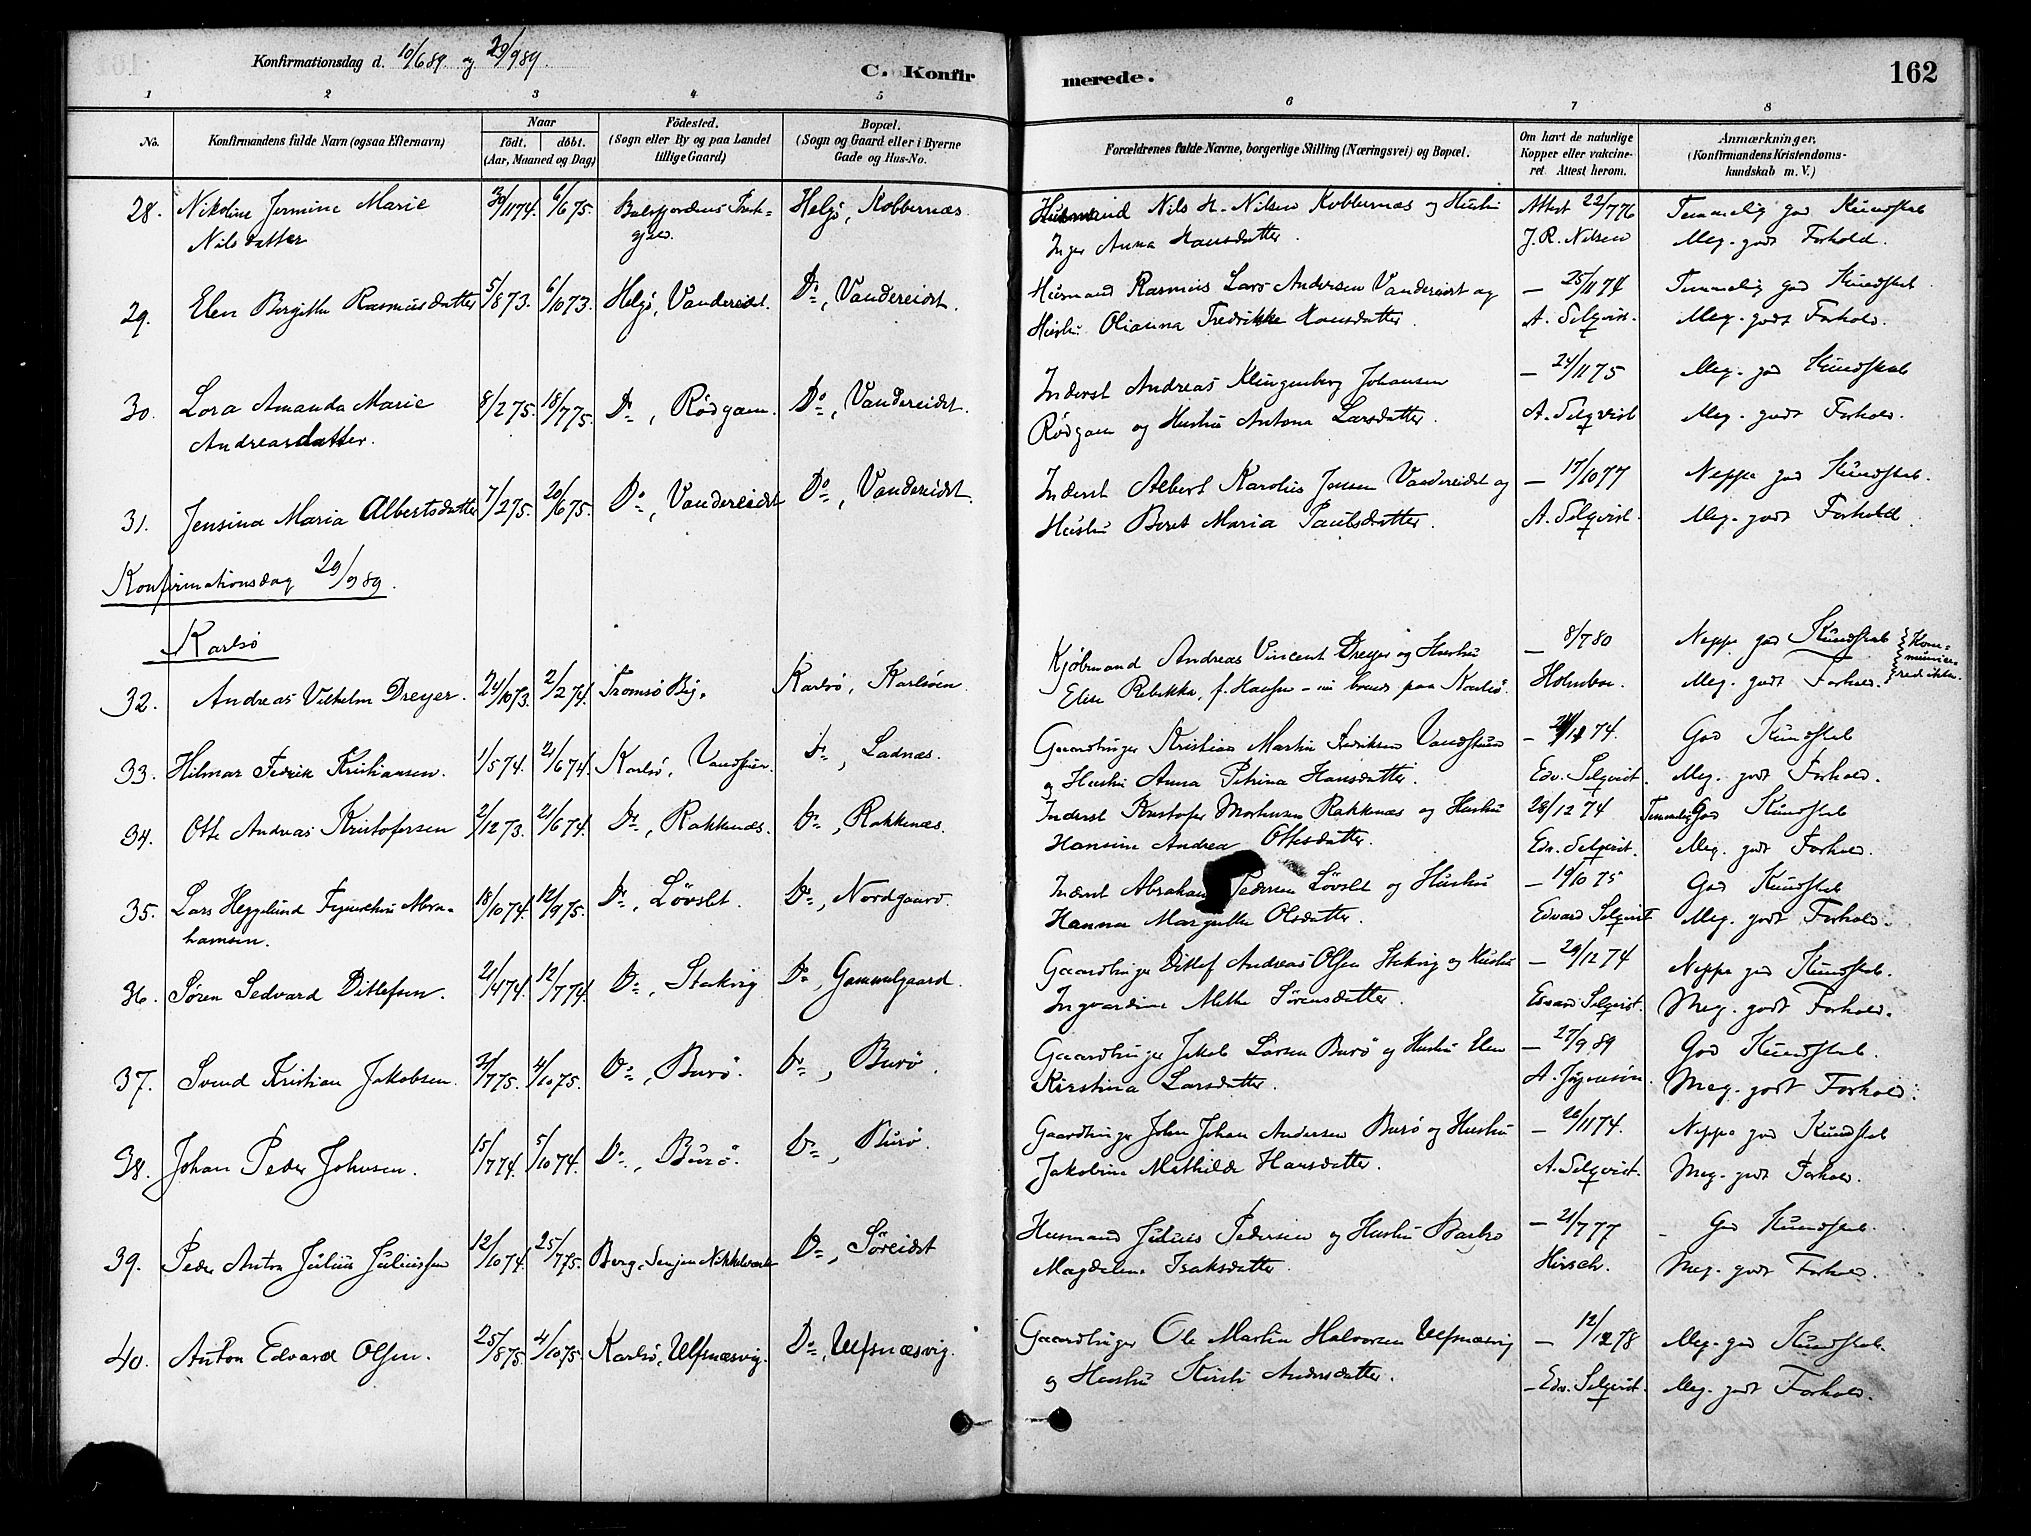 Konfirmationsdag d. 10/6 89. og 29/9 89.
C. Konfirmerede.
162
1 2 3 4 5 6 7 8
No.
Konfirmandens fulde Navn (ogsaa Efternavn)
Naar
födt. döbt.
(Aar, Maaned og Dag)
Födested.
(Sogn eller By og paa Landet
tillige Gaard)
Bopæl.
(Sogn og Gaard eller i Byerne
Gade og Hus-No.
Forældrenes fulde Navne, borgerlige Stilling (Næringsvei) og Bopæl.
Om havt de naturlige
Kopper eller vakcine-
ret. Attest herom.
Anmærkninger,
(Konfirmandens Kristendoms-
kundskab m. V.)
28. Nikoline Jermine Marie 30/11 74. 6/6 75. Balsfjordens Præst- Helgö, Kobbernæs. Husmand Nils H. Nilsen Kobbernæs og Hustru Attest 22/7 76 Temmelig god Kundskab
Nilsdatter gjeld. Inger Anna Hansdatter. J. R. Nilsen Meg. godt Forhold.
29. Elen Bergitte Rasmusdatter 5/8 73. 6/10 73. Helgö, Vandereidet. Do, Vandereidet. Husmand Rasmus Lars Andersen Vandereidet og — 25/11 74 Temmelig god Kundskab
Hustru Olianna Fredrikke Hansdatter. A. Selqvist. Meg. godt Forhold.
30. Lora Amanda Marie 8/2 75. 18/7 75. Do, Rödgaen. Do, Vandereidet. Inderst Andreas Klingenberg Johansen — 24/11 75 Meg. god Kundskab
Andreasdatter. Rödgaen og Hustru Antona Larsdatter. A. Selqvist Meg. godt Forhold.
31. Jensina Maria Albertsdatter 7/2 75. 20/6 75. Do, Vandereidet Do, Vandereidet. Inderst Albert Karolius Jensen Vandereidet og — 17/10 77 Neppe god Kundskab.
Hustru Beret Maria Paulsdatter. A. Selqvist. Meg. godt Forhold.
Konfirmationsdag 29/9 89.
Karlsö
32. Andreas Vilhelm Dreyer. 24/10 73. 2/2 74. Tromsö By. Karlsö, Karlsöen. Kjöbmand Andreas Vincent Dreyer og Hustru — 8/7 80 Neppe god Kundskab
Elise Rebekka, f. Hansen – nu boende paa Karlsö. Holmboe. Meg. godt Forhold. Kommunicerede ikke.
33. Hilmar Fedrik Kristiansen. 1/5 74. 21/6 74. Karlsö, Vandstuen. Do, Ladnæs. Gaardbruger Kristian Martin Fedriksen Vandstuen God Kundskab
og Hustru Anna Petrina Hansdatter. Edv. Selqvist. Meg. godt Forhold.
34. Otto Andreas Kristofersen 2/12 73. 21/6 74. Do, Rakkenæs. Do, Rakkenæs. Inderst Kristofer Mortensen Rakkenæs og Hustru 28/12 74 Temmelig God Kundskab
Hansine Andrea Ottesdatter. Edv. Selqvist. Meg. godt Forhold.
35. Lars Heggelund Abra- 18/10 74. 12/9 75. Do, Lövslet. Do, Nordgaard. Inderst Abraham Pedersen Lövslet og Hustru — 19/10 75 God Kundskab
hamsen. Hanna Margrethe Olsdatter. Edvard Selqvist Meg. godt Forhold.
36. Sören Sedvard Ditlefsen. 21/4 74. 12/7 74. Do, Stakvig Do, Gammelgaard. Gaardbruger Ditlef Andreas Olsen Stakvig og Hustru — 29/12 74 Neppe god Kundskab.
Ingvardine Mette Sörensdatter. Edvard Selqvist. Meg. godt Forhold.
37. Svend Kristian Jakobsen. 31/7 75. 4/10 75. Do, Burö. Do, Burö. Gaardbruger Jakob Larsen Burö og Hustru Elen — 27/9 89 God Kundskab.
Kirstina Larsdatter. A. Jörgensen. Meg. godt Forhold.
38. Johan Peder Johnsen. 15/7 74. 5/10 74. Do, Burö. Do, Burö. Gaardbruger John Johan Andersen Burö og Hustru — 26/11 74. Neppe god Kundskab
Jakobine Mathilde Hansdatter. A. Selqvist. Meg. godt Forhold.
39. Peder Anton Julius Juliussen 12/10 74. 25/7 75. Berg, Senjen Nikkelværk Do, Söreidet Husmand Julius Pedersen og Hustru Barbro — 21/7 77 God Kundskab.
Magdalena Isaksdatter. Hirsch. Meg. godt Forhold.
40. Anton Edvard Olsen. 25/8 75. 4/10 75. Karlsö, Ulfsnæsvig. Do, Ulfsnæsvig. Gaardbruger Ole Martin Halvorsen Ulfsnæsvig — 12/12 78 Meg. god Kundskab.
og Hustru Kirsti Andersdatter. — Edv. Selqvist. Meg. godt Forhold.